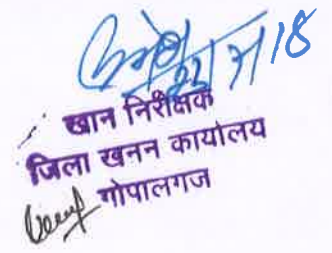 18
खान निरीक्षक
जिला खनन कार्यालय
गोपालगज